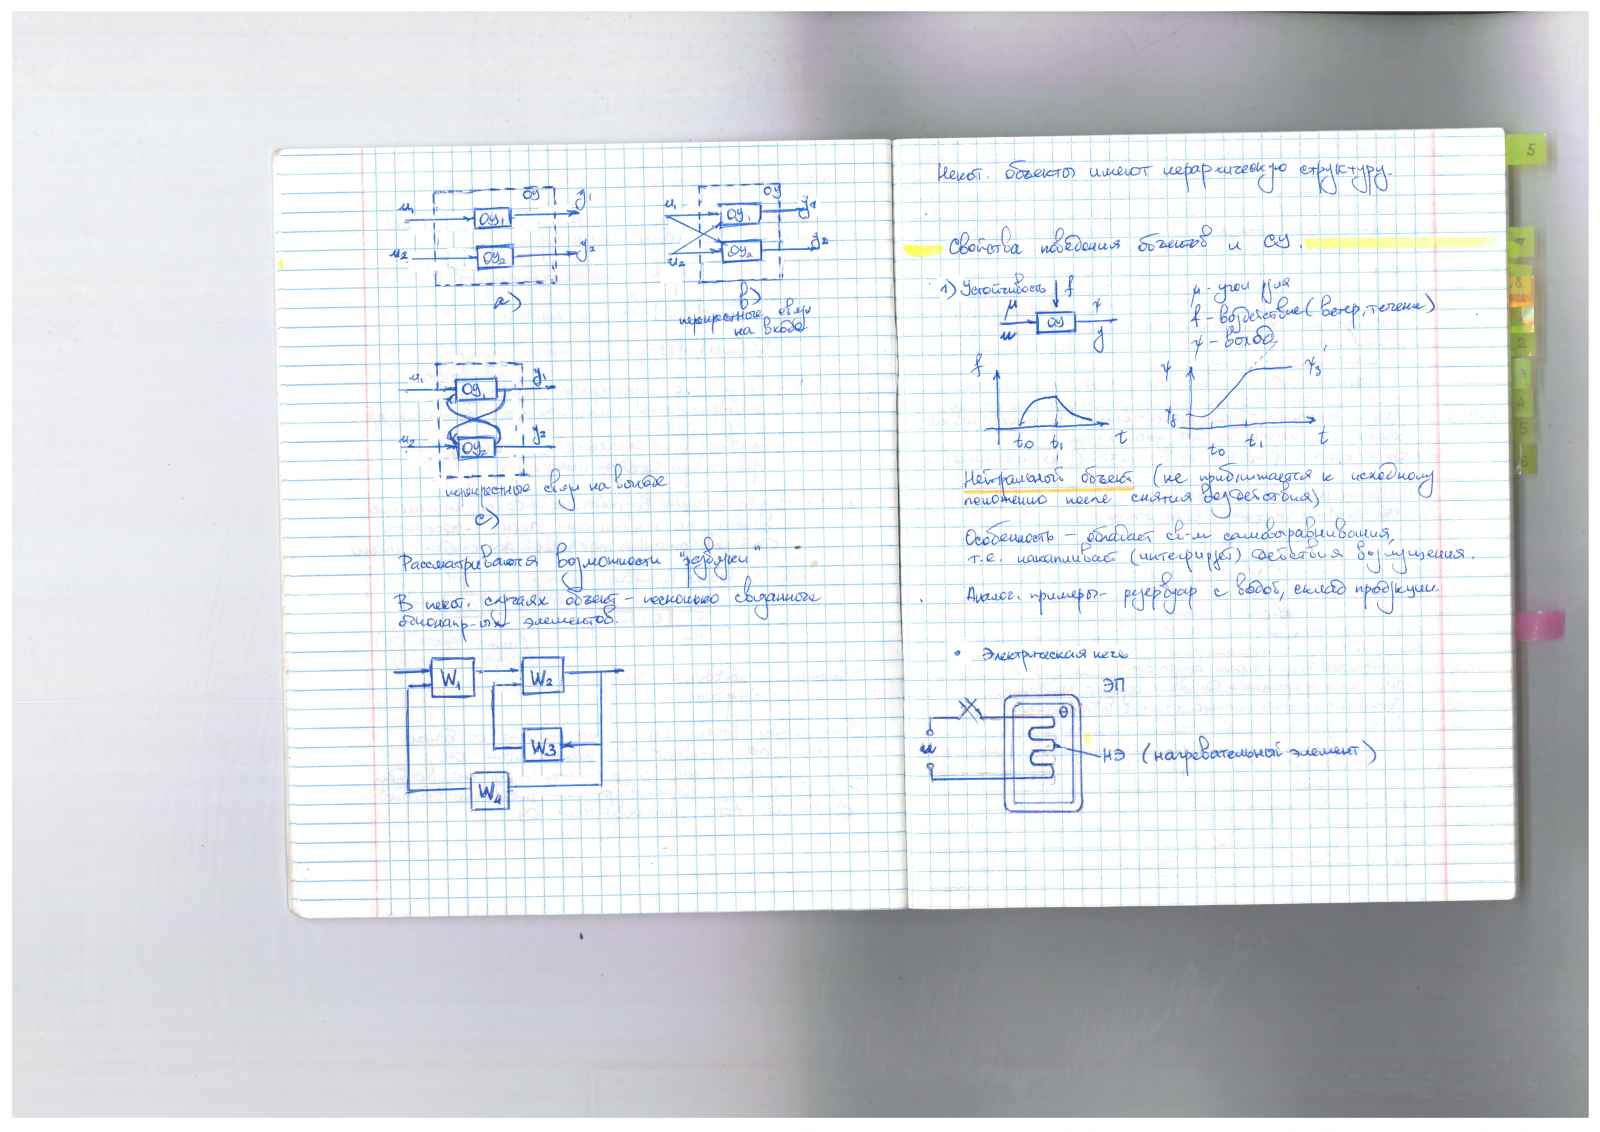 ОУ
u₁ ОУ₁ y₁
u₂ ОУ₂ y₂
а)
ОУ
u₁ ОУ₁ y₁
u₂ ОУ₂ y₂
в)
перекрестные связи
на входе
u₁ ОУ₁ y₁
u₂ ОУ₂ y₂
перекрестные связи на выходе
с)
Рассматриваются возможности "развязки"
В некот. случаях объект – несколько связанного
элементов.
W₁ W₂
W₃
W₄
Некот. объекты имеют иерархическую структуру.
Свойства поведения объектов и ОУ.
1) Устойчивость f
μ ψ
u ОУ y
μ - угол руля
f - воздействие (ветер, течение)
ψ - выход
f t₀ t₁ t
ψ ψ₀ t₀ t₁ t ψ₃
Нейтральный объект (не приближается к исходному
положению после снятия воздействия)
Особенность – обладает св-м самовыравнивания,
т.е. накапливает (интегрирует) действия возмущения.
Аналог. примеры – резервуар с водой, склад продукции.
• Электрическая печь
ЭП
θ
u
НЭ (нагревательный элемент)
5
7
8
2
3
4
5
6